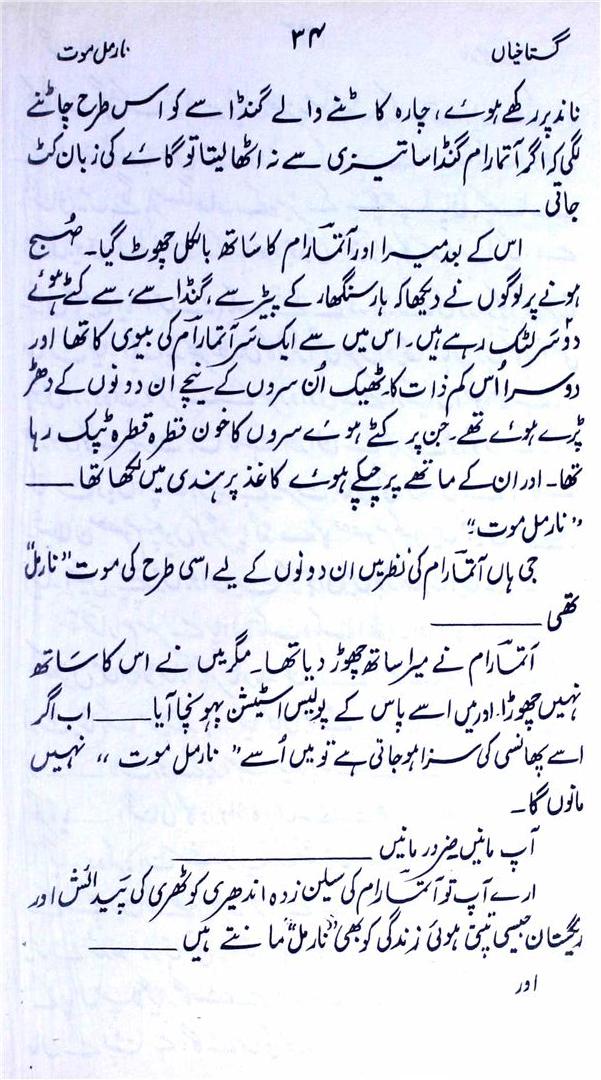 گستاخیاں ۳۴ نارمل موت
ناند پر رکھے ہوئے، چارہ کاٹنے والے گنڈاسے کو اس طرح چاٹنے
لگی کہ اگر آتمارام گنڈاسا تیزی سے نہ اٹھا لیتا تو گائے کی زبان کٹ
جاتی ـــــــــ
اس کے بعد میرا اور آتمارام کا ساتھ بالکل چھوٹ گیا۔ صُبح
ہونے پر لوگوں نے دیکھا کہ ہارسنگھار کے پیڑ سے، گنڈاسے، سے کٹے ہوئے
دو سَر لٹک رہے ہیں۔ اس میں سے ایک سَر آتمارام کی بیوی کا تھا اور
دوسرا اُس کم ذات کا۔ ٹھیک اُن سروں کے نیچے ان دونوں کے دھڑ
پڑے ہوئے تھے۔ جن پر کٹے ہوئے سروں کا خون قطرہ قطرہ ٹپک رہا
تھا۔ اور ان کے ماتھے پر چپکے ہوئے کاغذ پر ہندی میں لکھا تھا ـــــ
”نارمل موت“
جی ہاں آتمارام کی نظر میں ان دونوں کے لیے اسی طرح کی موت ”نارمل“
تھی ـــــــــ
آتمارام نے میرا ساتھ چھوڑ دیا تھا۔ مگر میں نے اس کا ساتھ
نہیں چھوڑا۔ اور میں اسے پاس کے پولیس اسٹیشن پہونچا آیا ـــــ اب اگر
اسے پھانسی کی سزا ہو جاتی ہے تو میں اُسے ”نارمل موت“ نہیں
مانوں گا۔
آپ مانیں ضرور مانیں ـــــــــ
ارے آپ تو آتمارام کی سیلن زدہ اندھیری کوٹھری کی پَیدائش اور
ریگستان جیسی تپتی ہوئی زندگی کو بھی ”نارمل“ مانتے ہیں ـــــــــ
اور